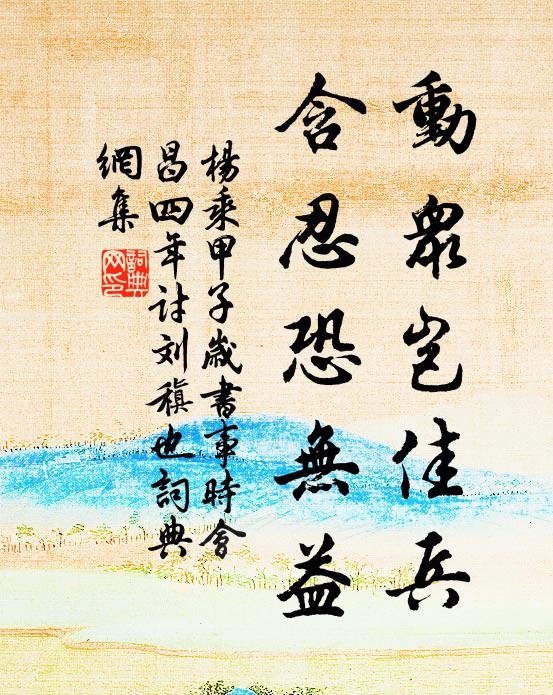 動眾豈佳兵
含忍恐無益
楊乘甲子歲書事時會
昌四年討刘稹也詞典
網集
詞典网印